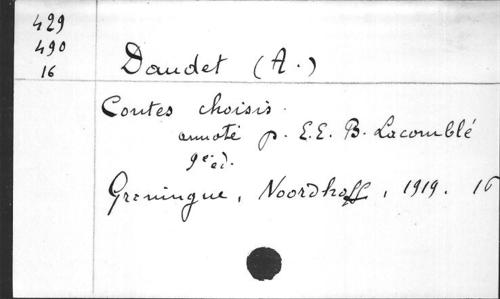 429
490
16
Daudet (A.)
Contes choisis.
annoté p. E.E. B. Lacomblé
9e éd.
Groningue, Noordhoff, 1919. 16